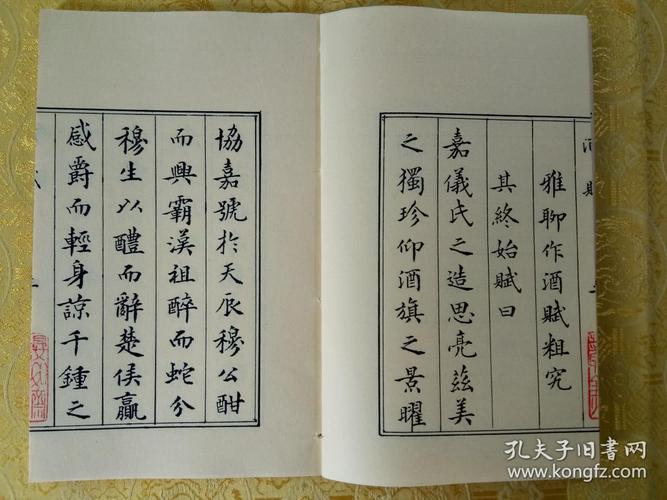 酒賦
雅聊作酒賦粗究
其終始賦曰
嘉儀氏之造思亮茲美
之獨珍仰酒旗之景曜
協嘉號於天辰穆公酣
而興霸漢祖醉而蛇分
穆生以醴而辭楚侯嬴
感爵而輕身諒千鍾之
孔夫子旧书网
www.kongfz.com